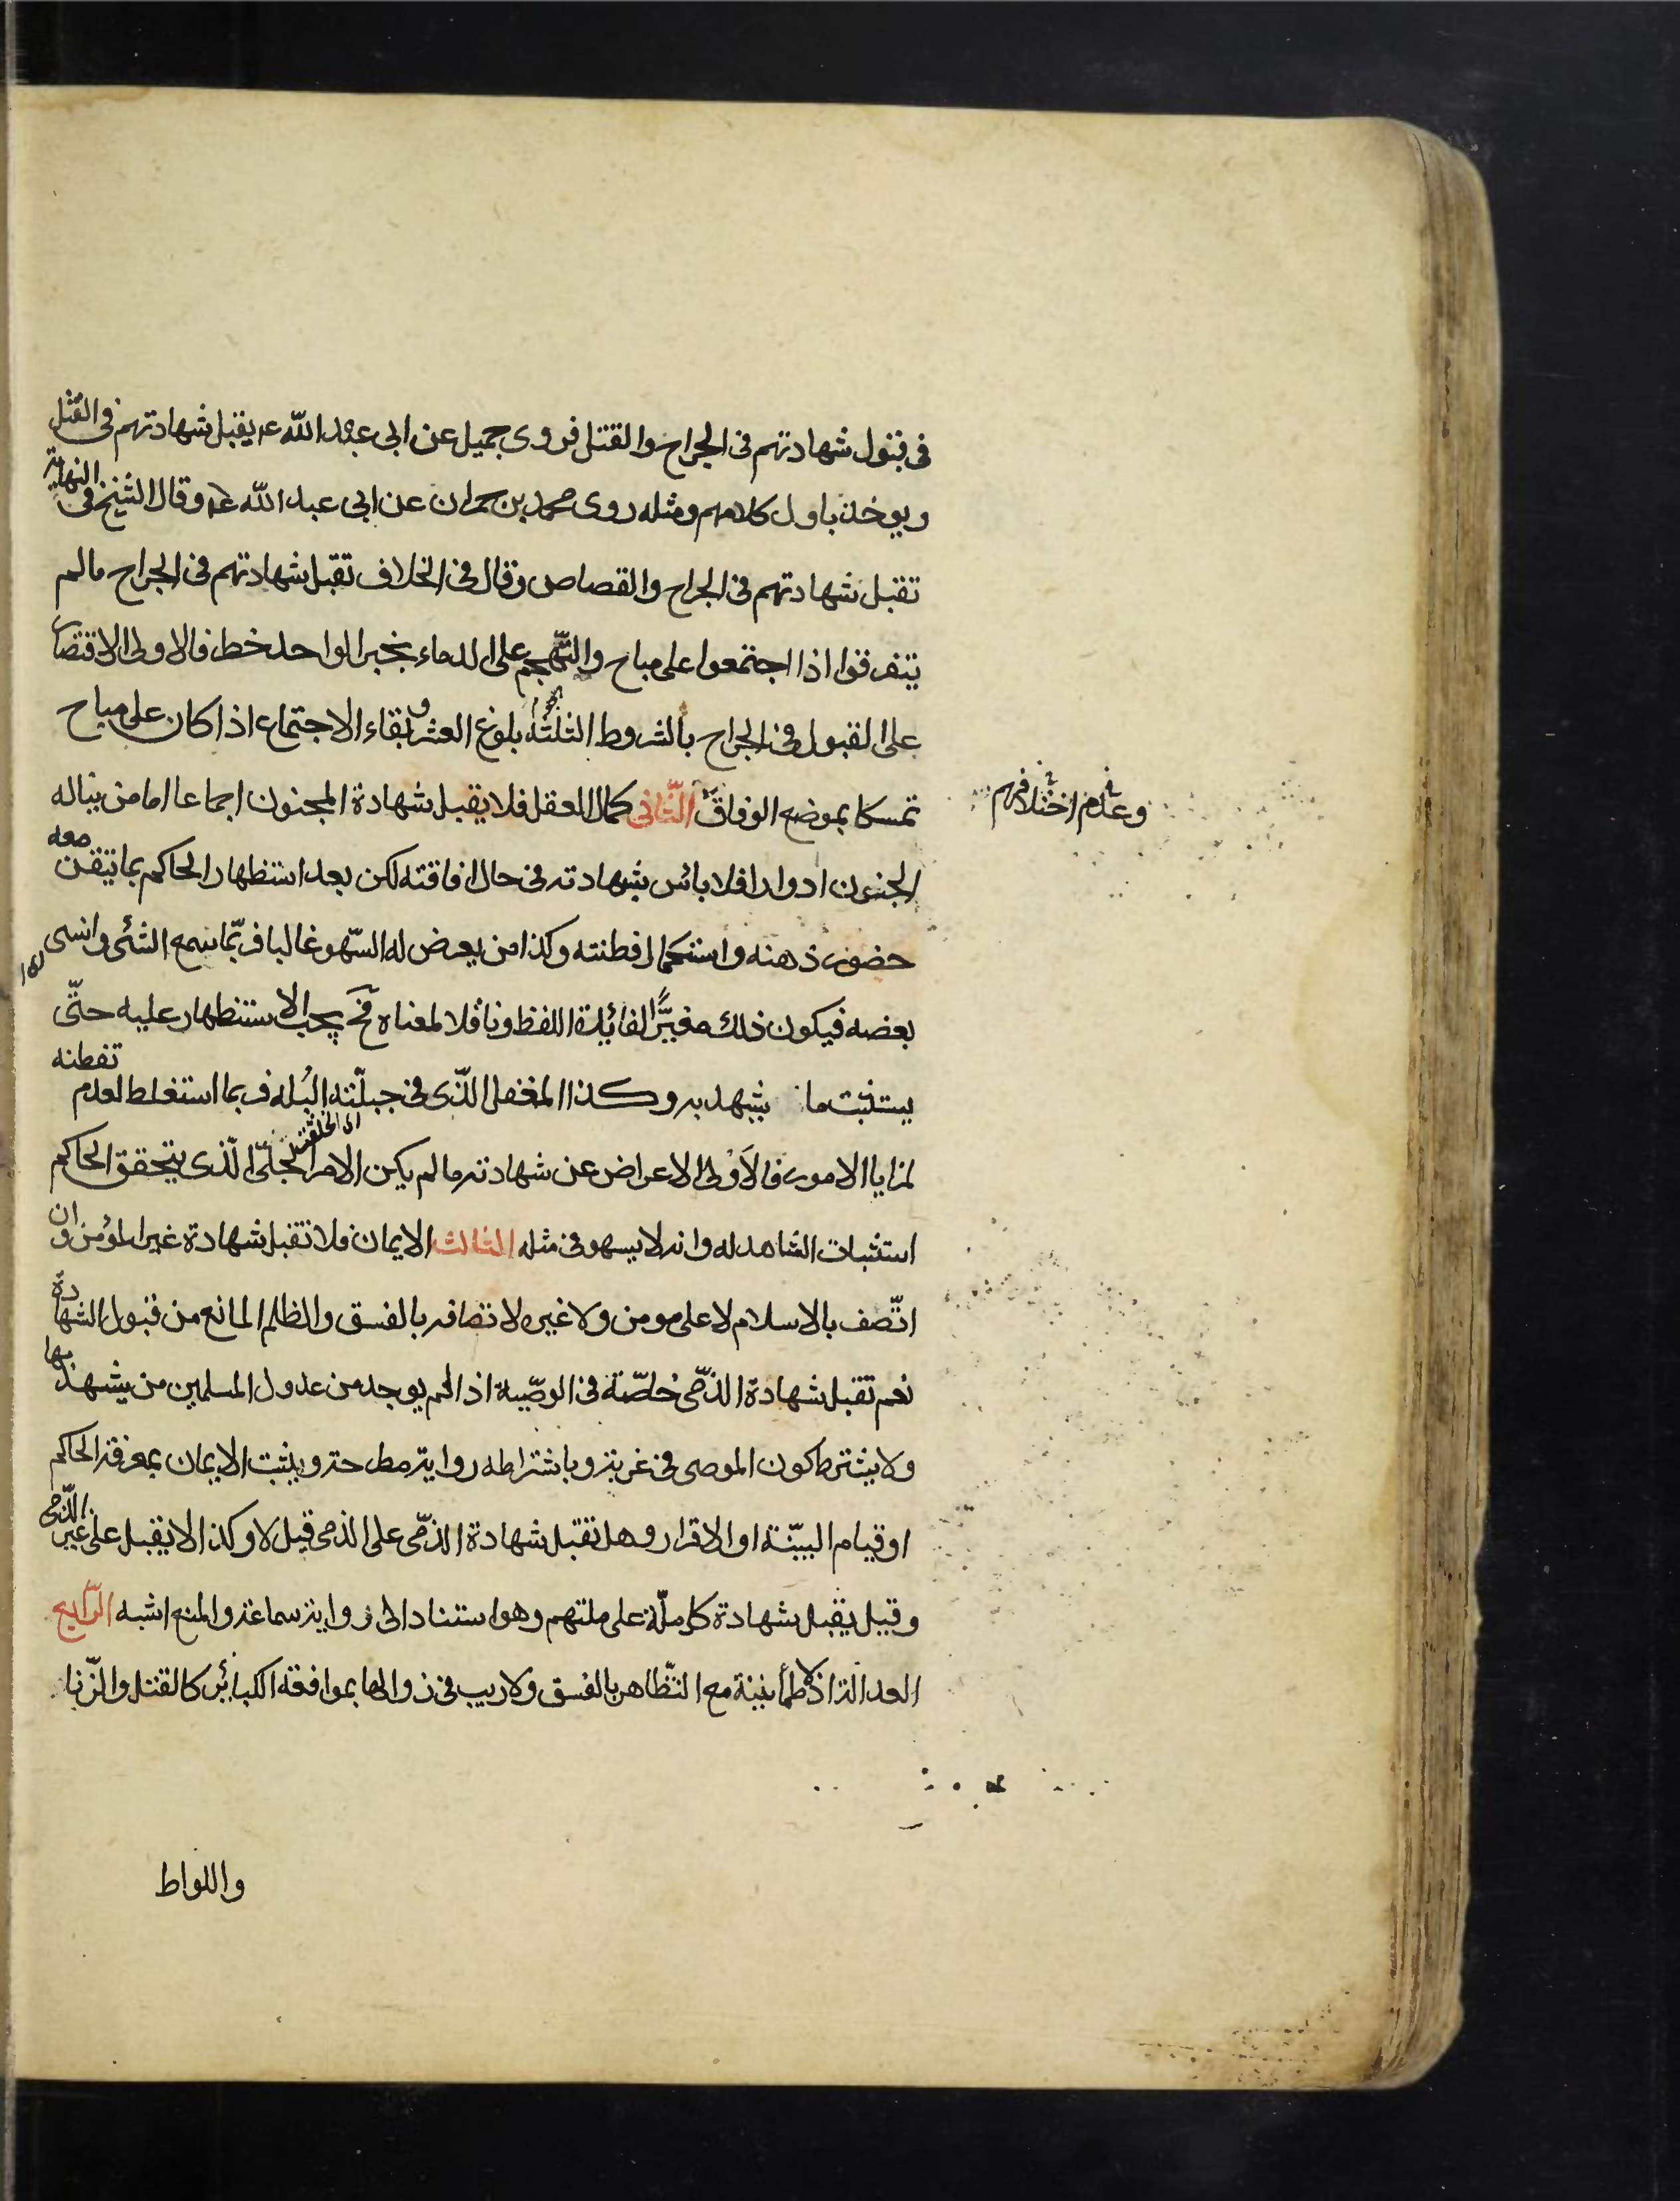 في قبول شهادتهم في الجراح والقتل فروى جميل عن ابى عبد الله ع يقبل شهادتهم في القتل
ويوخذ باول كلامهم ومثله روى محمد بن حمران عن ابى عبد الله ع وقال الشيخ في النهاية
تقبل شهادتهم في الجراح والقصاص وقال في الخلاف تقبل شهادتهم في الجراح مالم
يتفرقوا اذا اجتمعوا على مباح والتهجم على الدماء بخبر الواحد خطر فالاولى الاقتصار
على القبول في الجراح بالشروط الثلثة بلوغ العشر وبقاء الاجتماع اذا كان على مباح
تمسكا بموضع الوفاق الثّانى كمال العقل فلا يقبل شهادة المجنون اجماعا اما من يناله
وعدم اختلافهم
الجنون ادوارا فلا بائس بشهادته في حال افاقته لكن بعد استظهار الحاكم بما تيقن معه
حضور ذهنه واستكمال فطنته وكذا من يعرض له السّهو غالبا فربّما سمع الشئ وانسى
بعضه فيكون ذلك مغيرًّا لفائدة اللفظ وناقلا لمعناه فح يجب الاستظهار عليه حتّى
يستثبت ما يشهد به وكذا المغفل الّذى في جبلّته البُله فربما استغلط لعدم تفطنه
لمزايا الامور فالاَوْلى الاعراض عن شهادته ما لم يكن الامر الجلّى الّذى يتحقق الحاكم
استثبات الشاهد له وانه لا يسهو في مثله الثالث الايمان فلا تقبل شهادة غير المؤمن وان
اتّصف بالاسلام لا على مومن ولا غيره لا تصافه بالفسق والظلم المانع من قبول الشهادة
نعم تقبل شهادة الذمّى خاصّة في الوصّية اذا لم يوجد من عدول المسلمين من يشهد بها
ولا يشترط كون الموصى في غربة وباشتراطه رواية مطرحة ويثبت الايمان بمعرفة الحاكم
او قيام البيّنة او الاقرار وهل تقبل شهادة الذمّى على الذمى قيل لا وكذا لا يقبل على غير الذّمى
وقيل يقبل شهادة كل ملّة على ملتهم وهو استناد الى رواية سماعة والمنع اشبه الرّابع
العدالة اذ لا طمأنينة مع التّظاهر بالفسق ولا ريب في زوالها بموافقة الكبائر كالقتل والزّنا
واللواط